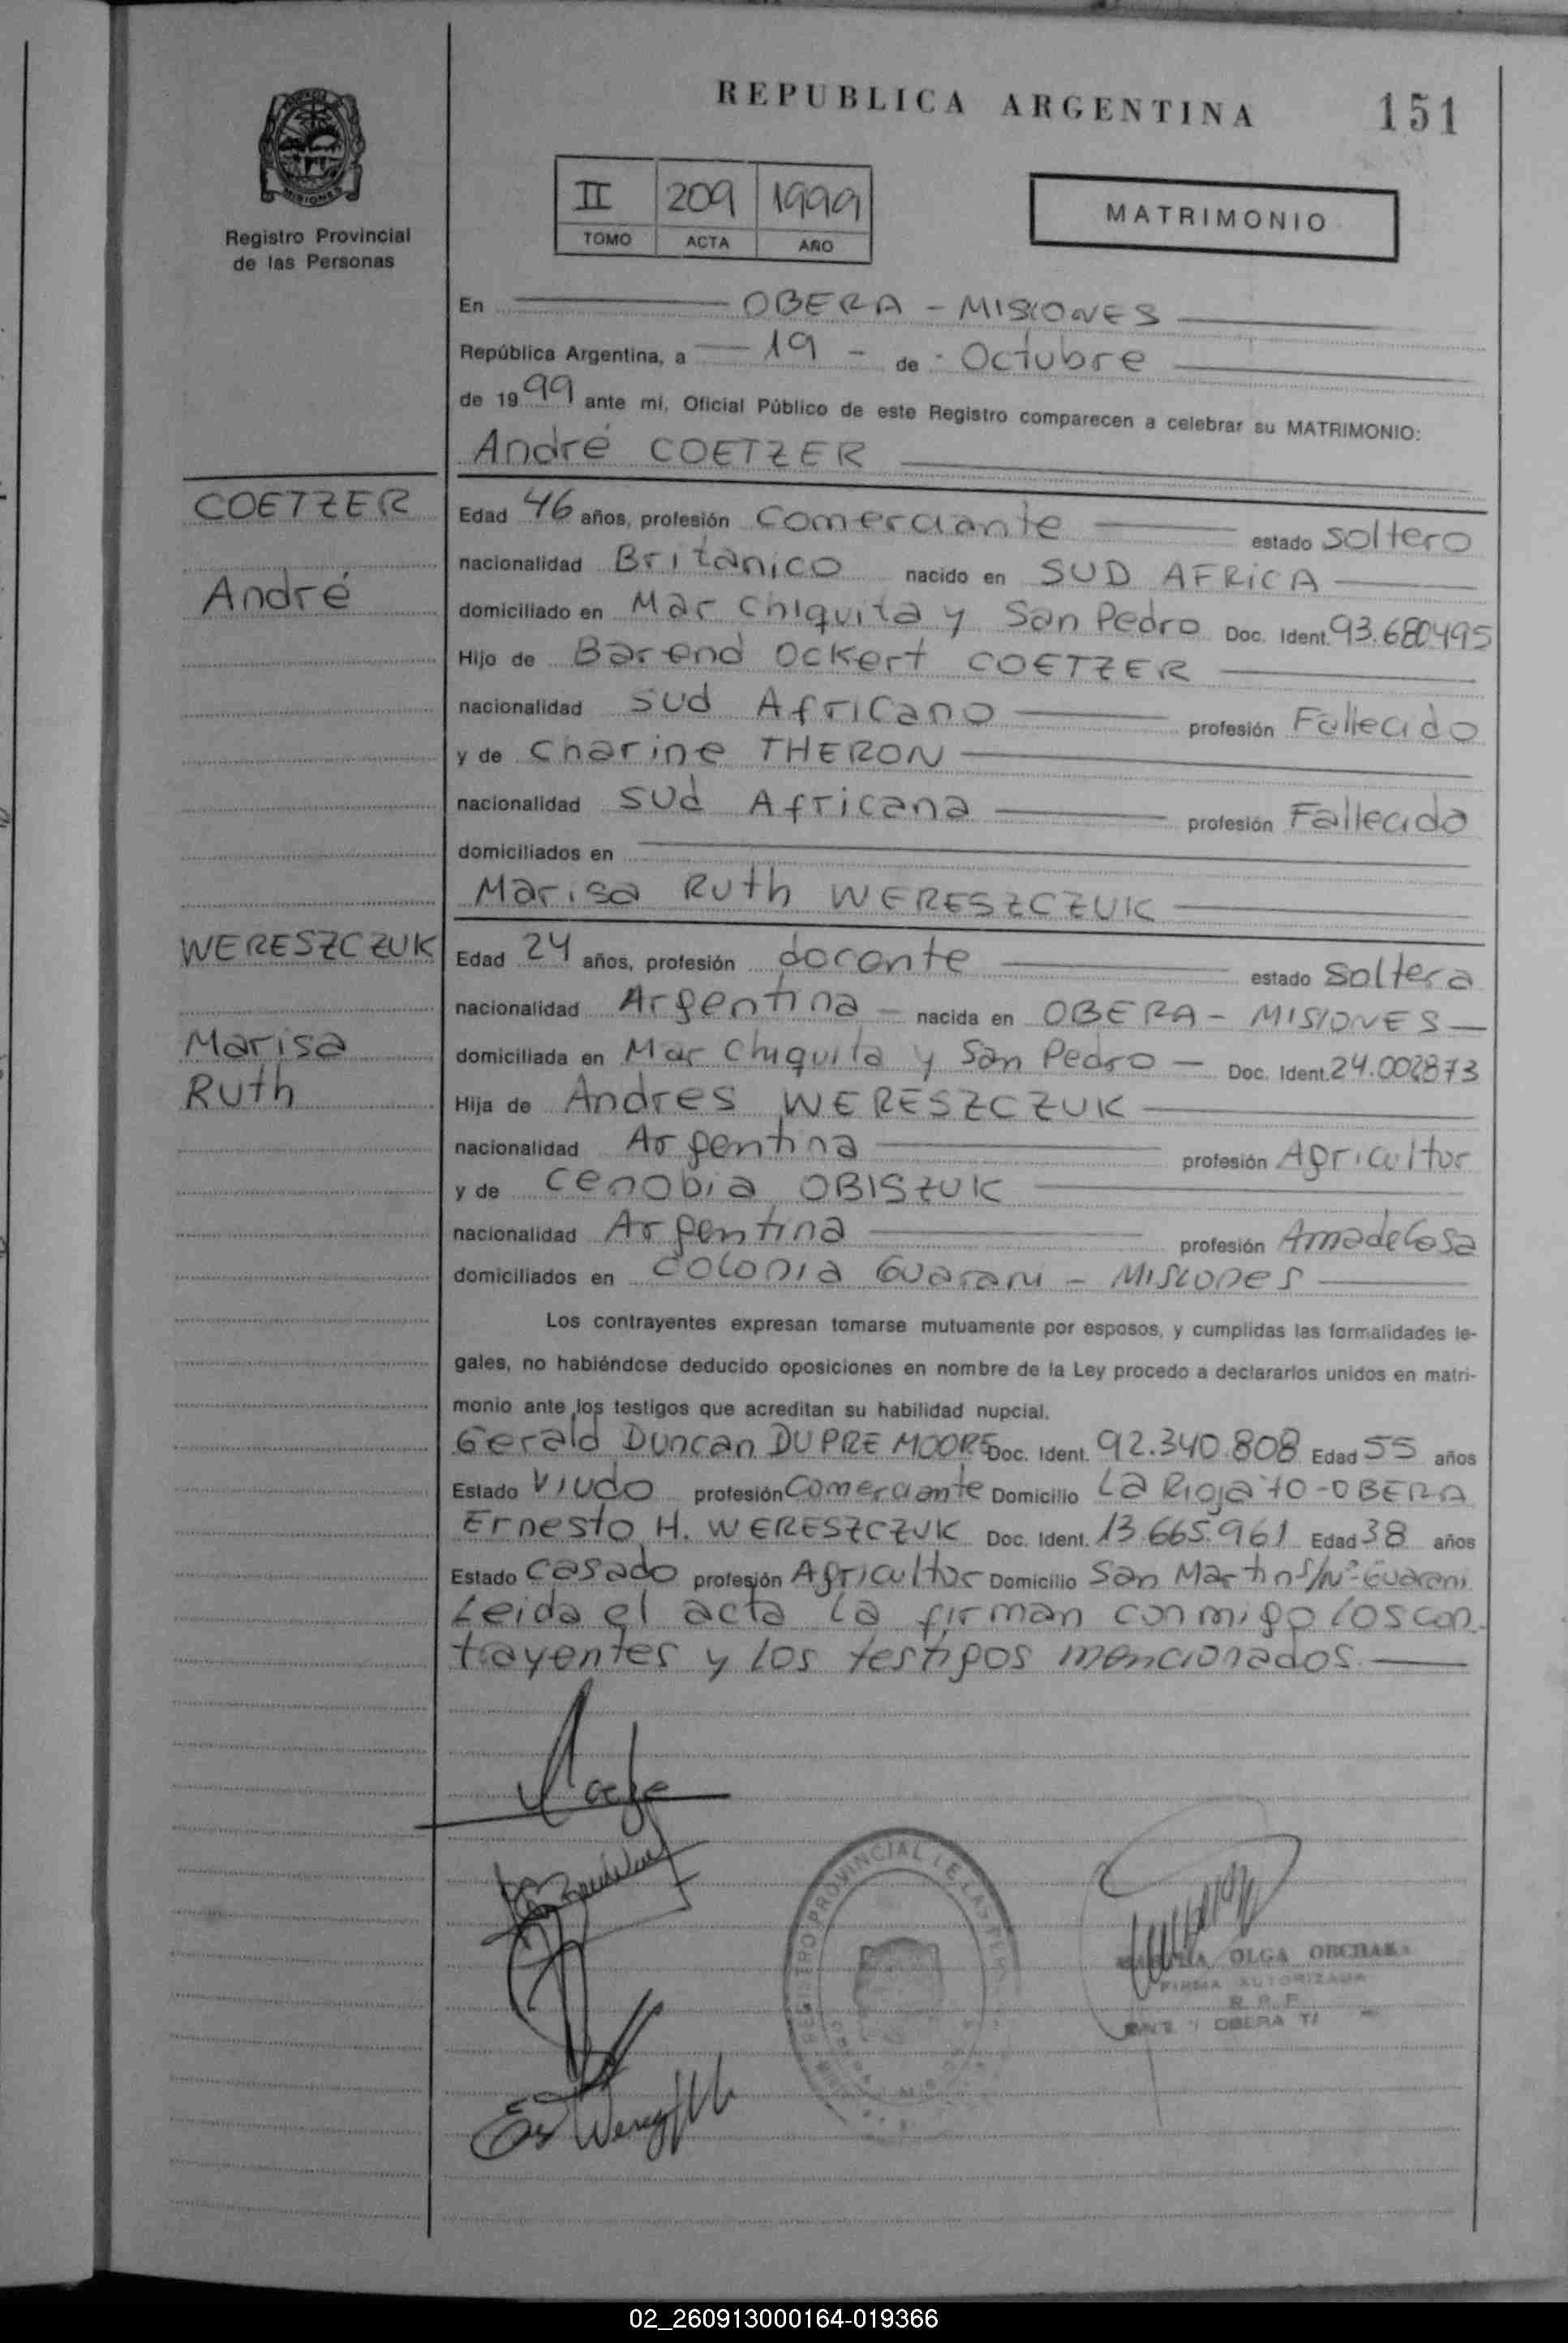 REPUBLICA ARGENTINA 151
MISIONES
Registro Provincial
de las Personas
II 209 1999
TOMO ACTA AÑO
MATRIMONIO
En OBERA - MISIONES
República Argentina, a 19 - de Octubre
de 1999 ante mí, Oficial Público de este Registro comparecen a celebrar su MATRIMONIO:
André COETZER
COETZER
André
Edad 46 años, profesión Comerciante estado Soltero
nacionalidad Británico nacido en SUD AFRICA
domiciliado en Mar Chiquita y San Pedro Doc. Ident. 93.680495
Hijo de Barend Ockert COETZER
nacionalidad Sud Africano profesión Fallecido
y de Charine THERON
nacionalidad Sud Africana profesión Fallecida
domiciliados en
Marisa Ruth WERESZCZUK
WERESZCZUK
Marisa
Ruth
Edad 24 años, profesión docente estado Soltera
nacionalidad Argentina - nacida en OBERA - MISIONES
domiciliada en Mar Chiquita y San Pedro - Doc. Ident. 24.002873
Hija de Andres WERESZCZUK
nacionalidad Argentina profesión Agricultor
y de Cenobia OBISZUK
nacionalidad Argentina profesión Ama de Casa
domiciliados en Colonia Guarani - Misiones
Los contrayentes expresan tomarse mutuamente por esposos, y cumplidas las formalidades le-
gales, no habiéndose deducido oposiciones en nombre de la Ley procedo a declararlos unidos en matri-
monio ante los testigos que acreditan su habilidad nupcial.
Gerald Duncan DUPRE MOORE Doc. Ident. 92.340.808 Edad 55 años
Estado Viudo profesión Comerciante Domicilio La Rioja 70 - OBERA
Ernesto H. WERESZCZUK Doc. Ident. 13.665.961 Edad 38 años
Estado Casado profesión Agricultor Domicilio San Martin S/Nº - Guarani
Leida el acta la firman conmigo los con-
trayentes y los testigos mencionados.
REGISTRO PROVINCIAL DE LAS
OLGA OBCHAKA
FIRMA AUTORIZADA
OBERA
02_260913000164-019366